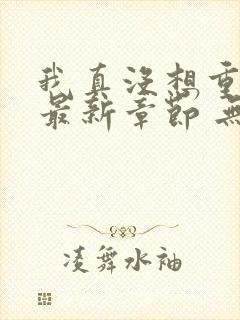 我真没想重
最新章节 无
凌舞水袖